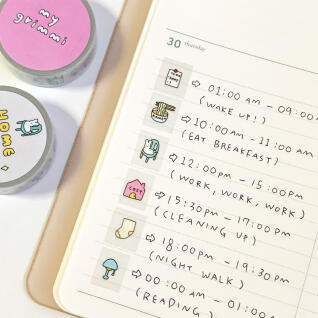 my
grimmi
HOME
30 thursday
⇨ 01:00 am - 09:00
(WAKE UP!)
⇨ 10:00 am - 11:00 am
(EAT BREAKFAST)
⇨ 12:00 pm - 15:00 pm
(WORK, WORK, WORK)
⇨ 15:30 pm - 17:00 pm
(CLEANING UP)
⇨ 18:00 pm - 19:30 pm
(NIGHT WALK)
⇨ 00:00 am - 01:00
(READING)